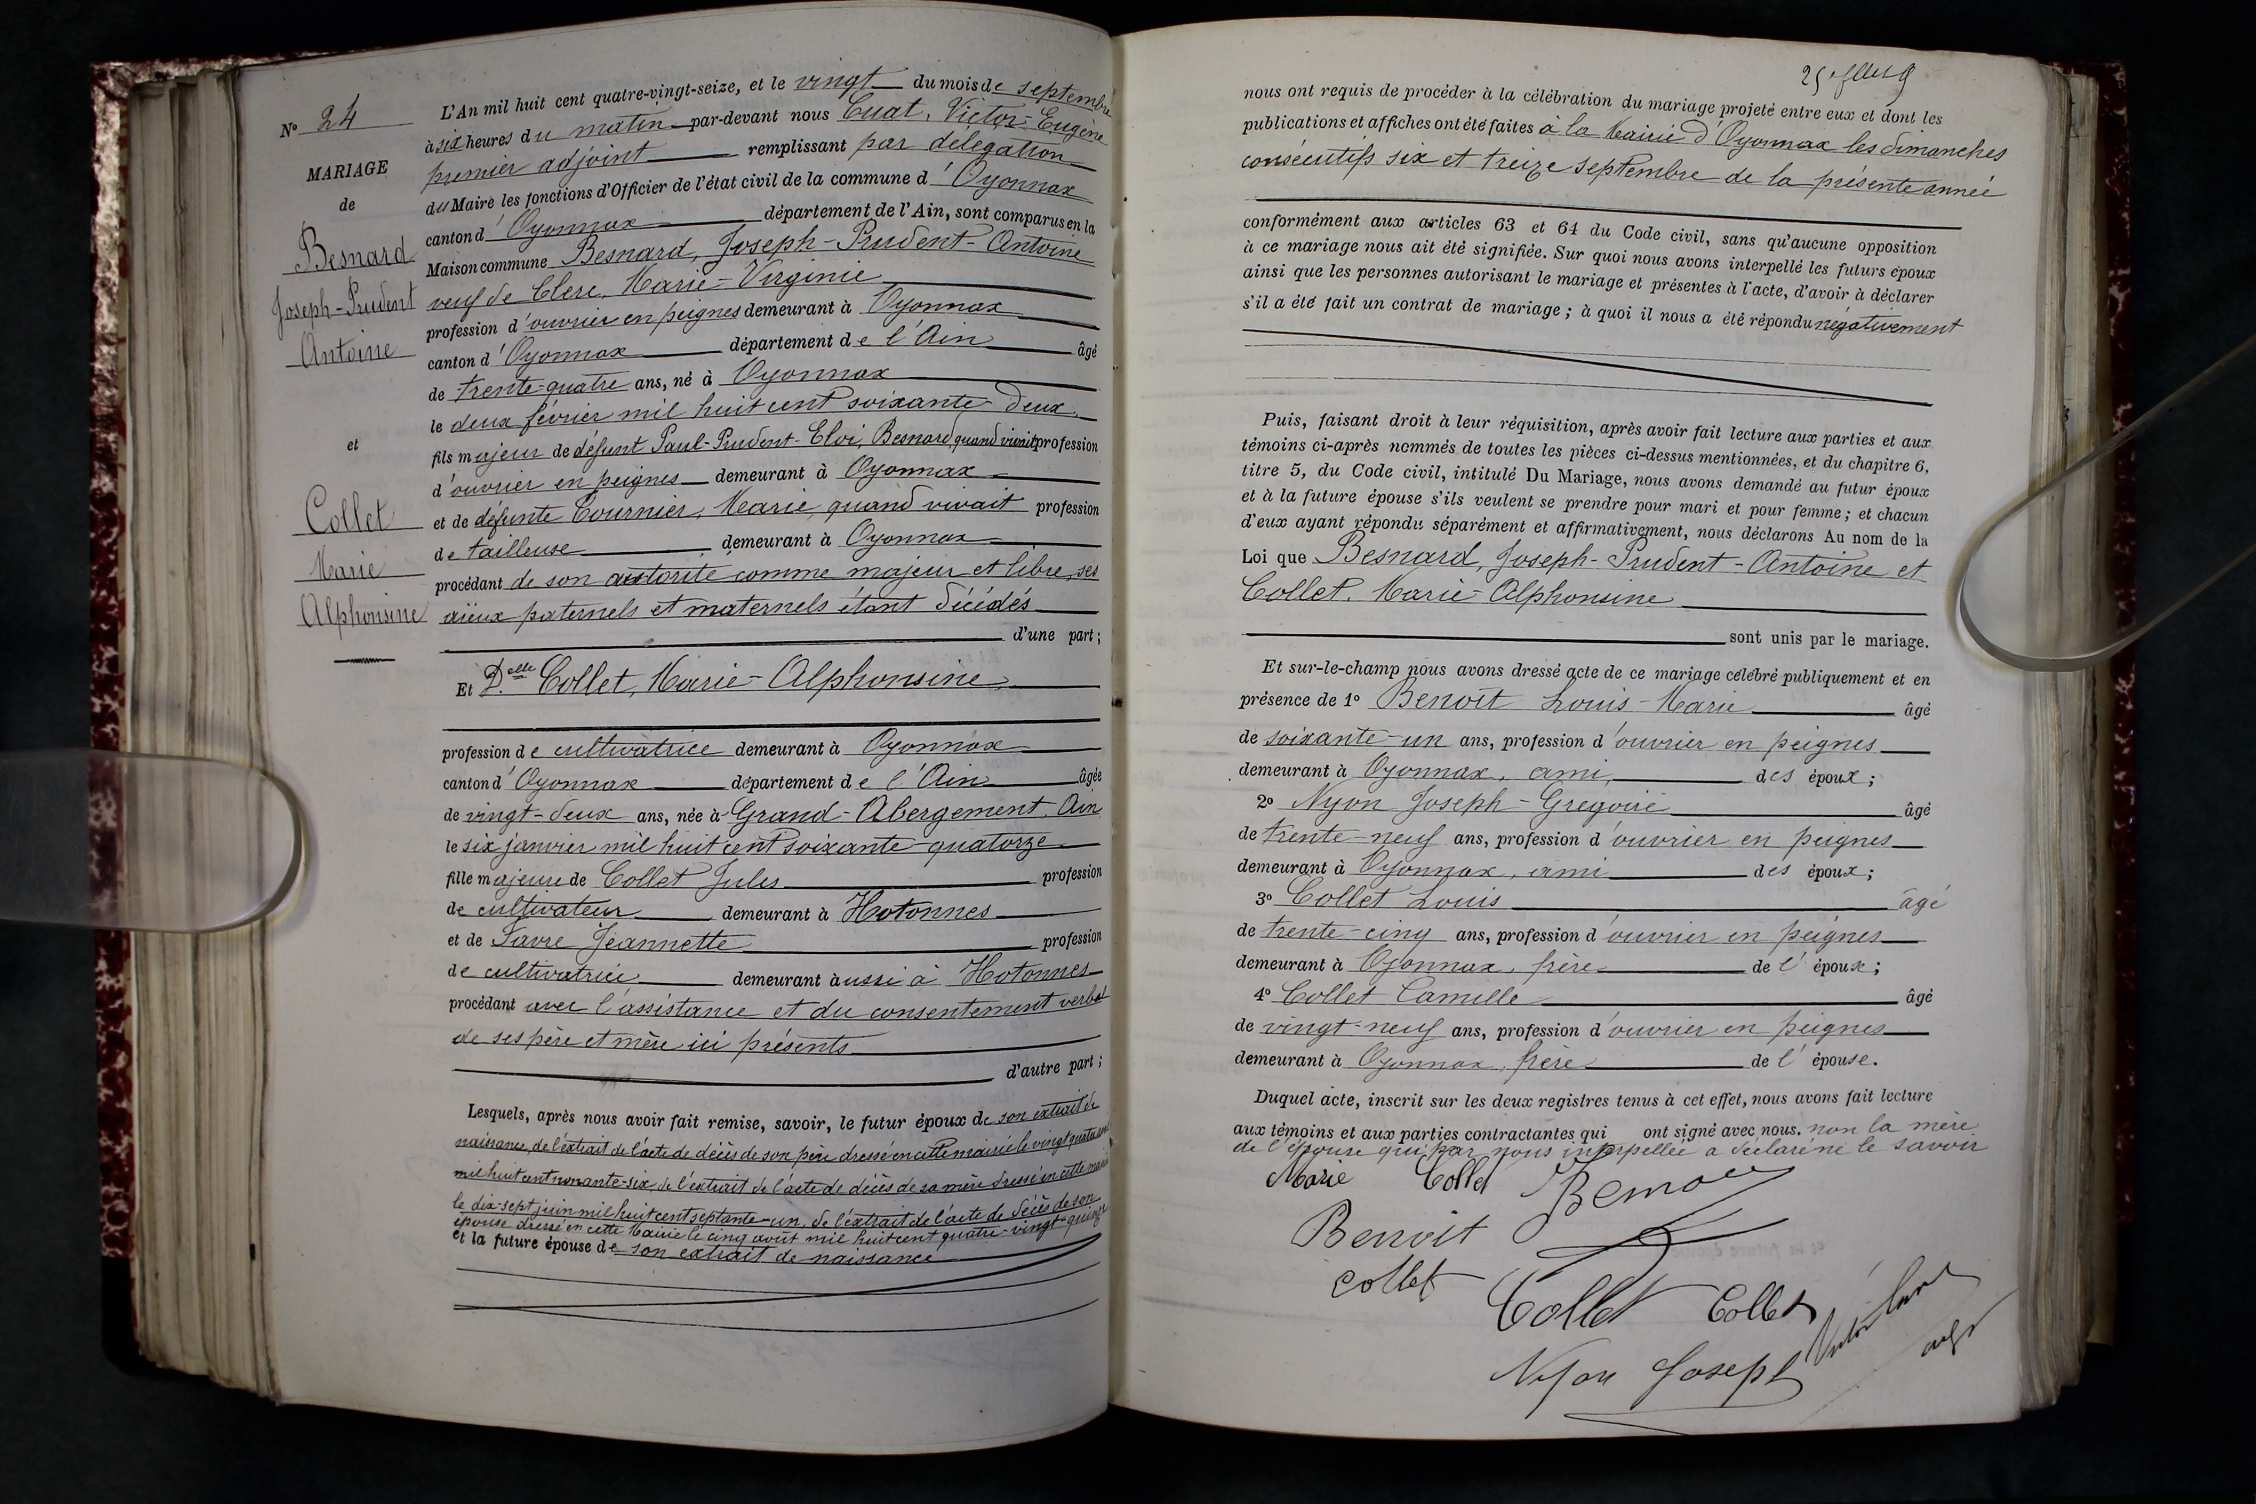 N° 24
MARIAGE
de
Besnard
Joseph-Prudent
Antoine
et
Collet
Marie
Alphonsine
L'An mil huit cent quatre-vingt-seize, et le vingt du mois de septembre
à six heures du matin par-devant nous Cuat, Victor-Eugène
premier adjoint remplissant par délégation
du Maire les fonctions d'Officier de l'état civil de la commune d'Oyonnax
canton d'Oyonnax département de l'Ain, sont comparus en la
Maison commune Besnard, Joseph-Prudent-Antoine
veuf de Clerc, Marie-Virginie
profession d'ouvrier en peignes demeurant à Oyonnax
canton d'Oyonnax département de l'Ain âgé
de trente-quatre ans, né à Oyonnax
le deux février mil huit cent soixante deux
fils majeur de défunt Paul-Prudent-Eloi Besnard, quand vivait profession
d'ouvrier en peignes demeurant à Oyonnax
et de défunte Tournier, Marie, quand vivait profession
de tailleuse demeurant à Oyonnax
procédant de son autorité comme majeur et libre, ses
aïeux paternels et maternels étant décédés
d'une part;
Et Delle Collet, Marie-Alphonsine
profession de cultivatrice demeurant à Oyonnax
canton d'Oyonnax département de l'Ain âgée
de vingt-deux ans, née à Grand-Abergement, Ain
le six janvier mil huit cent soixante-quatorze
fille majeure de Collet Jules profession
de cultivateur demeurant à Hotonnes
et de Favre Jeannette profession
de cultivatrice demeurant aussi à Hotonnes
procédant avec l'assistance et du consentement verbal
de ses père et mère ici présents
d'autre part;
Lesquels, après nous avoir fait remise, savoir, le futur époux de son extrait de
naissance, de l'extrait de l'acte de décès de son père dressé en cette mairie le vingt quatre
mil huit cent nonante-six, de l'extrait de l'acte de décès de sa mère dressé en cette mairie
le dix-sept juin mil huit cent septante-un, de l'extrait de l'acte de décès de son
épouse dressé en cette Mairie le cinq août mil huit cent quatre-vingt-quinze
et la future épouse de son extrait de naissance
nous ont requis de procéder à la célébration du mariage projeté entre eux et dont les
publications et affiches ont été faites à la Mairie d'Oyonnax les dimanches
consécutifs six et treize septembre de la présente année
conformément aux articles 63 et 64 du Code civil, sans qu'aucune opposition
à ce mariage nous ait été signifiée. Sur quoi nous avons interpellé les futurs époux
ainsi que les personnes autorisant le mariage et présentes à l'acte, d'avoir à déclarer
s'il a été fait un contrat de mariage; à quoi il nous a été répondu négativement
Puis, faisant droit à leur réquisition, après avoir fait lecture aux parties et aux
témoins ci-après nommés de toutes les pièces ci-dessus mentionnées, et du chapitre 6,
titre 5, du Code civil, intitulé Du Mariage, nous avons demandé au futur époux
et à la future épouse s'ils veulent se prendre pour mari et pour femme; et chacun
d'eux ayant répondu séparément et affirmativement, nous déclarons Au nom de la
Loi que Besnard, Joseph-Prudent-Antoine et
Collet, Marie-Alphonsine
sont unis par le mariage.
Et sur-le-champ nous avons dressé acte de ce mariage célébré publiquement et en
présence de 1° Benoit Louis-Marie âgé
de soixante-un ans, profession d'ouvrier en peignes
demeurant à Oyonnax, ami des époux;
2° Nyon Joseph-Gregoire âgé
de trente-neuf ans, profession d'ouvrier en peignes
demeurant à Oyonnax, ami des époux;
3° Collet Louis âgé
de trente-cinq ans, profession d'ouvrier en peignes
demeurant à Oyonnax, frère de l'épouse;
4° Collet Camille âgé
de vingt-neuf ans, profession d'ouvrier en peignes
demeurant à Oyonnax, frère de l'épouse.
Duquel acte, inscrit sur les deux registres tenus à cet effet, nous avons fait lecture
aux témoins et aux parties contractantes qui ont signé avec nous. non la mère
de l'épouse qui par nous interpellée a déclaré ne le savoir
Marie Collet
Benoit
Collet
Collet Collet
Nyon Joseph